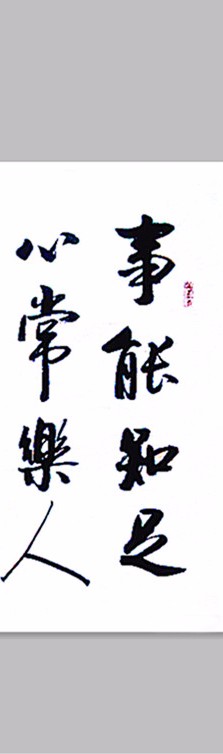 事能知足
心常樂人